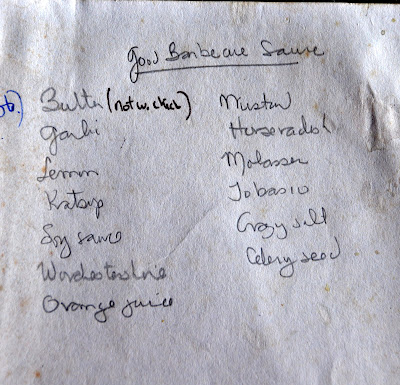 Good Barbecue Sauce
Butter (not w. chick)
Garlic
Lemon
Katsup
Soy sauce
Worchestershire
Orange juice
Mustard
Horseradish
Molasses
Tobasco
Crazy salt
Celery seed